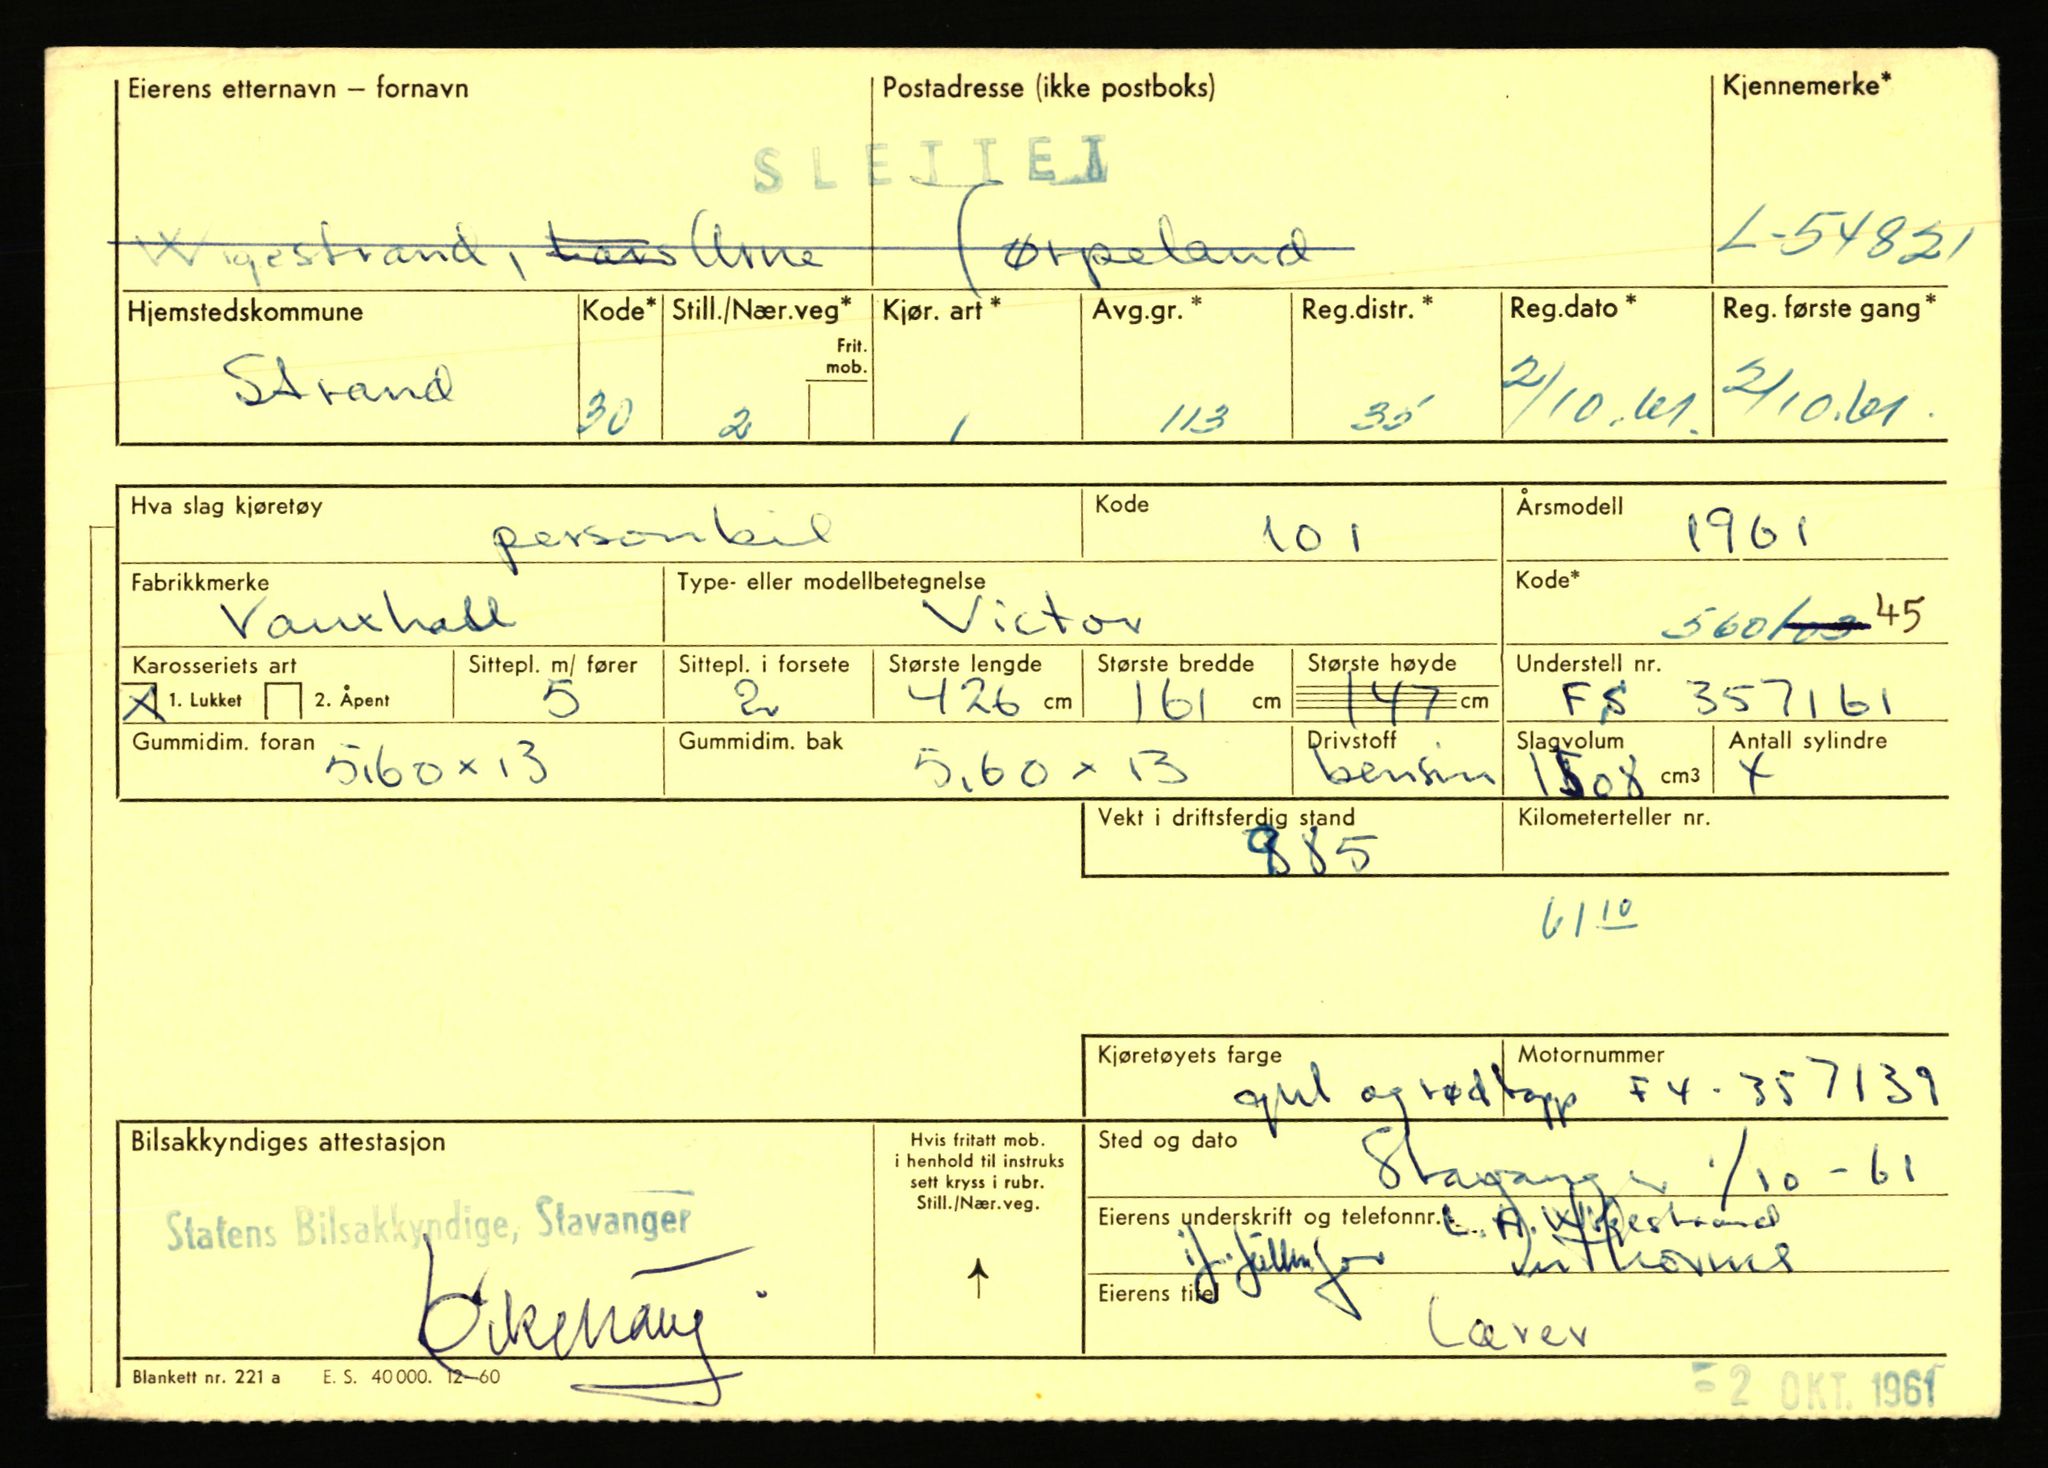 Eierens etternavn – fornavn Postadresse (ikke postboks) Kjennemerke*
SLETTET
Wigestrand, Lars Arne Jørpeland L-54821
Hjemstedskommune Kode* Still./Nær.veg* Kjør. art* Avg.gr.* Reg.distr.* Reg.dato* Reg. første gang*
Frit. mob.
Strand 30 2 1 113 35 2/10.61. 2/10.61.
Hva slag kjøretøy Kode Årsmodell
personbil 101 1961
Fabrikkmerke Type- eller modellbetegnelse Kode*
Vauxhall Victor 560/03 45
Karosseriets art Sittepl. m/ fører Sittepl. i forsete Største lengde Største bredde Største høyde Understell nr.
X 1. Lukket 2. Åpent 5 2 426 cm 161 cm 147 cm FS 357161
Gummidim. foran Gummidim. bak Drivstoff Slagvolum Antall sylindre
5,60 x 13 5,60 x 13 bensin 1508 cm3 4
Vekt i driftsferdig stand Kilometerteller nr.
985
61 10
Kjøretøyets farge Motornummer
gul og rød topp F4-357139
Bilsakkyndiges attestasjon Hvis fritatt mob. i henhold til instruks sett kryss i rubr. Still./Nær.veg. Sted og dato
Stavanger 1/10-61
Statens Bilsakkyndige, Stavanger
Eierens underskrift og telefonnr. L. A. Wigestrand
Eierens titel
Lærer
Blankett nr. 221 a E. S. 40 000. 12–60
2 OKT. 1961